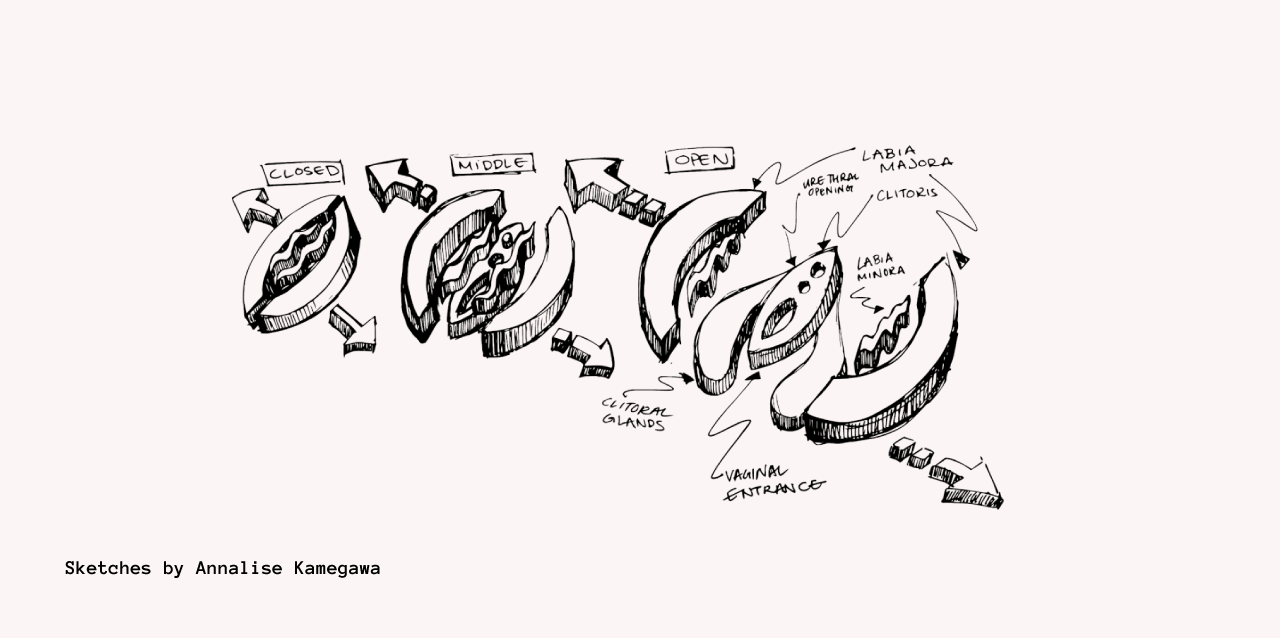 CLOSED
MIDDLE
OPEN
LABIA
MAJORA
URETHRAL
OPENING
CLITORIS
LABIA
MINORA
CLITORAL
GLANDS
VAGINAL
ENTRANCE
Sketches by Annalise Kamegawa